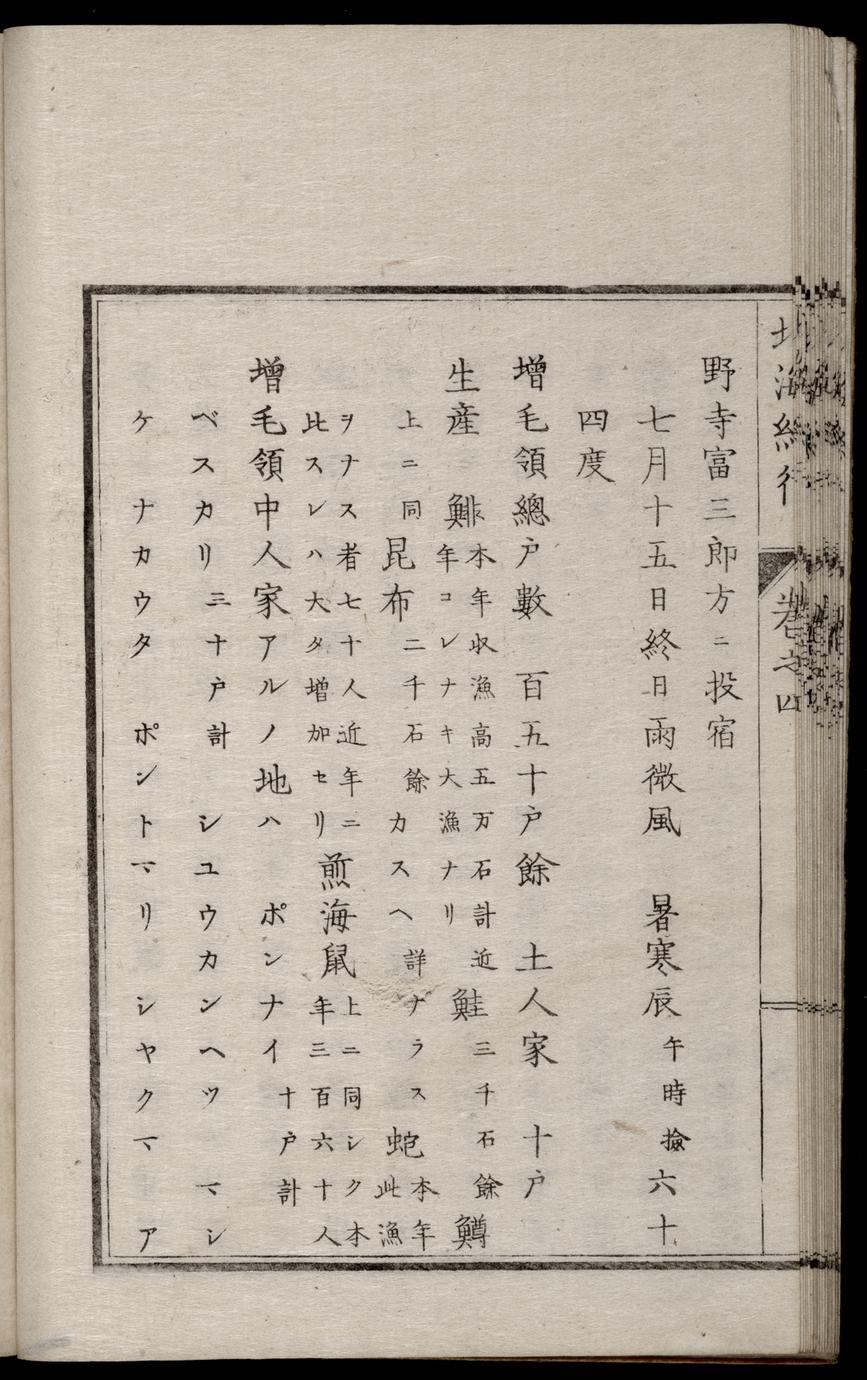 北海紀行 卷之四
野寺富三郎方ニ投宿
七月十五日終日雨微風 暑寒辰 午時撿六十
四度
増毛領總戸數 百五十戸餘 土人家 十戸
生産 鯡 本年収漁高五万石計近年コレナキ大漁ナリ 鮭 三千石餘 鱒
上ニ同 昆布 二千石餘 カスヘ 詳ナラス 蛇 本年此漁
ヲナス者七十人近年ニ比スレハ大タ増加セリ 煎海鼠 上ニ同シク本年三百六十人
増毛領中人家アルノ地ハ ポンナイ 十戸計
ベスカリ 三十戸計 シユウカンヘツ マシ
ケ ナカウタ ポントマリ シヤクマ ア